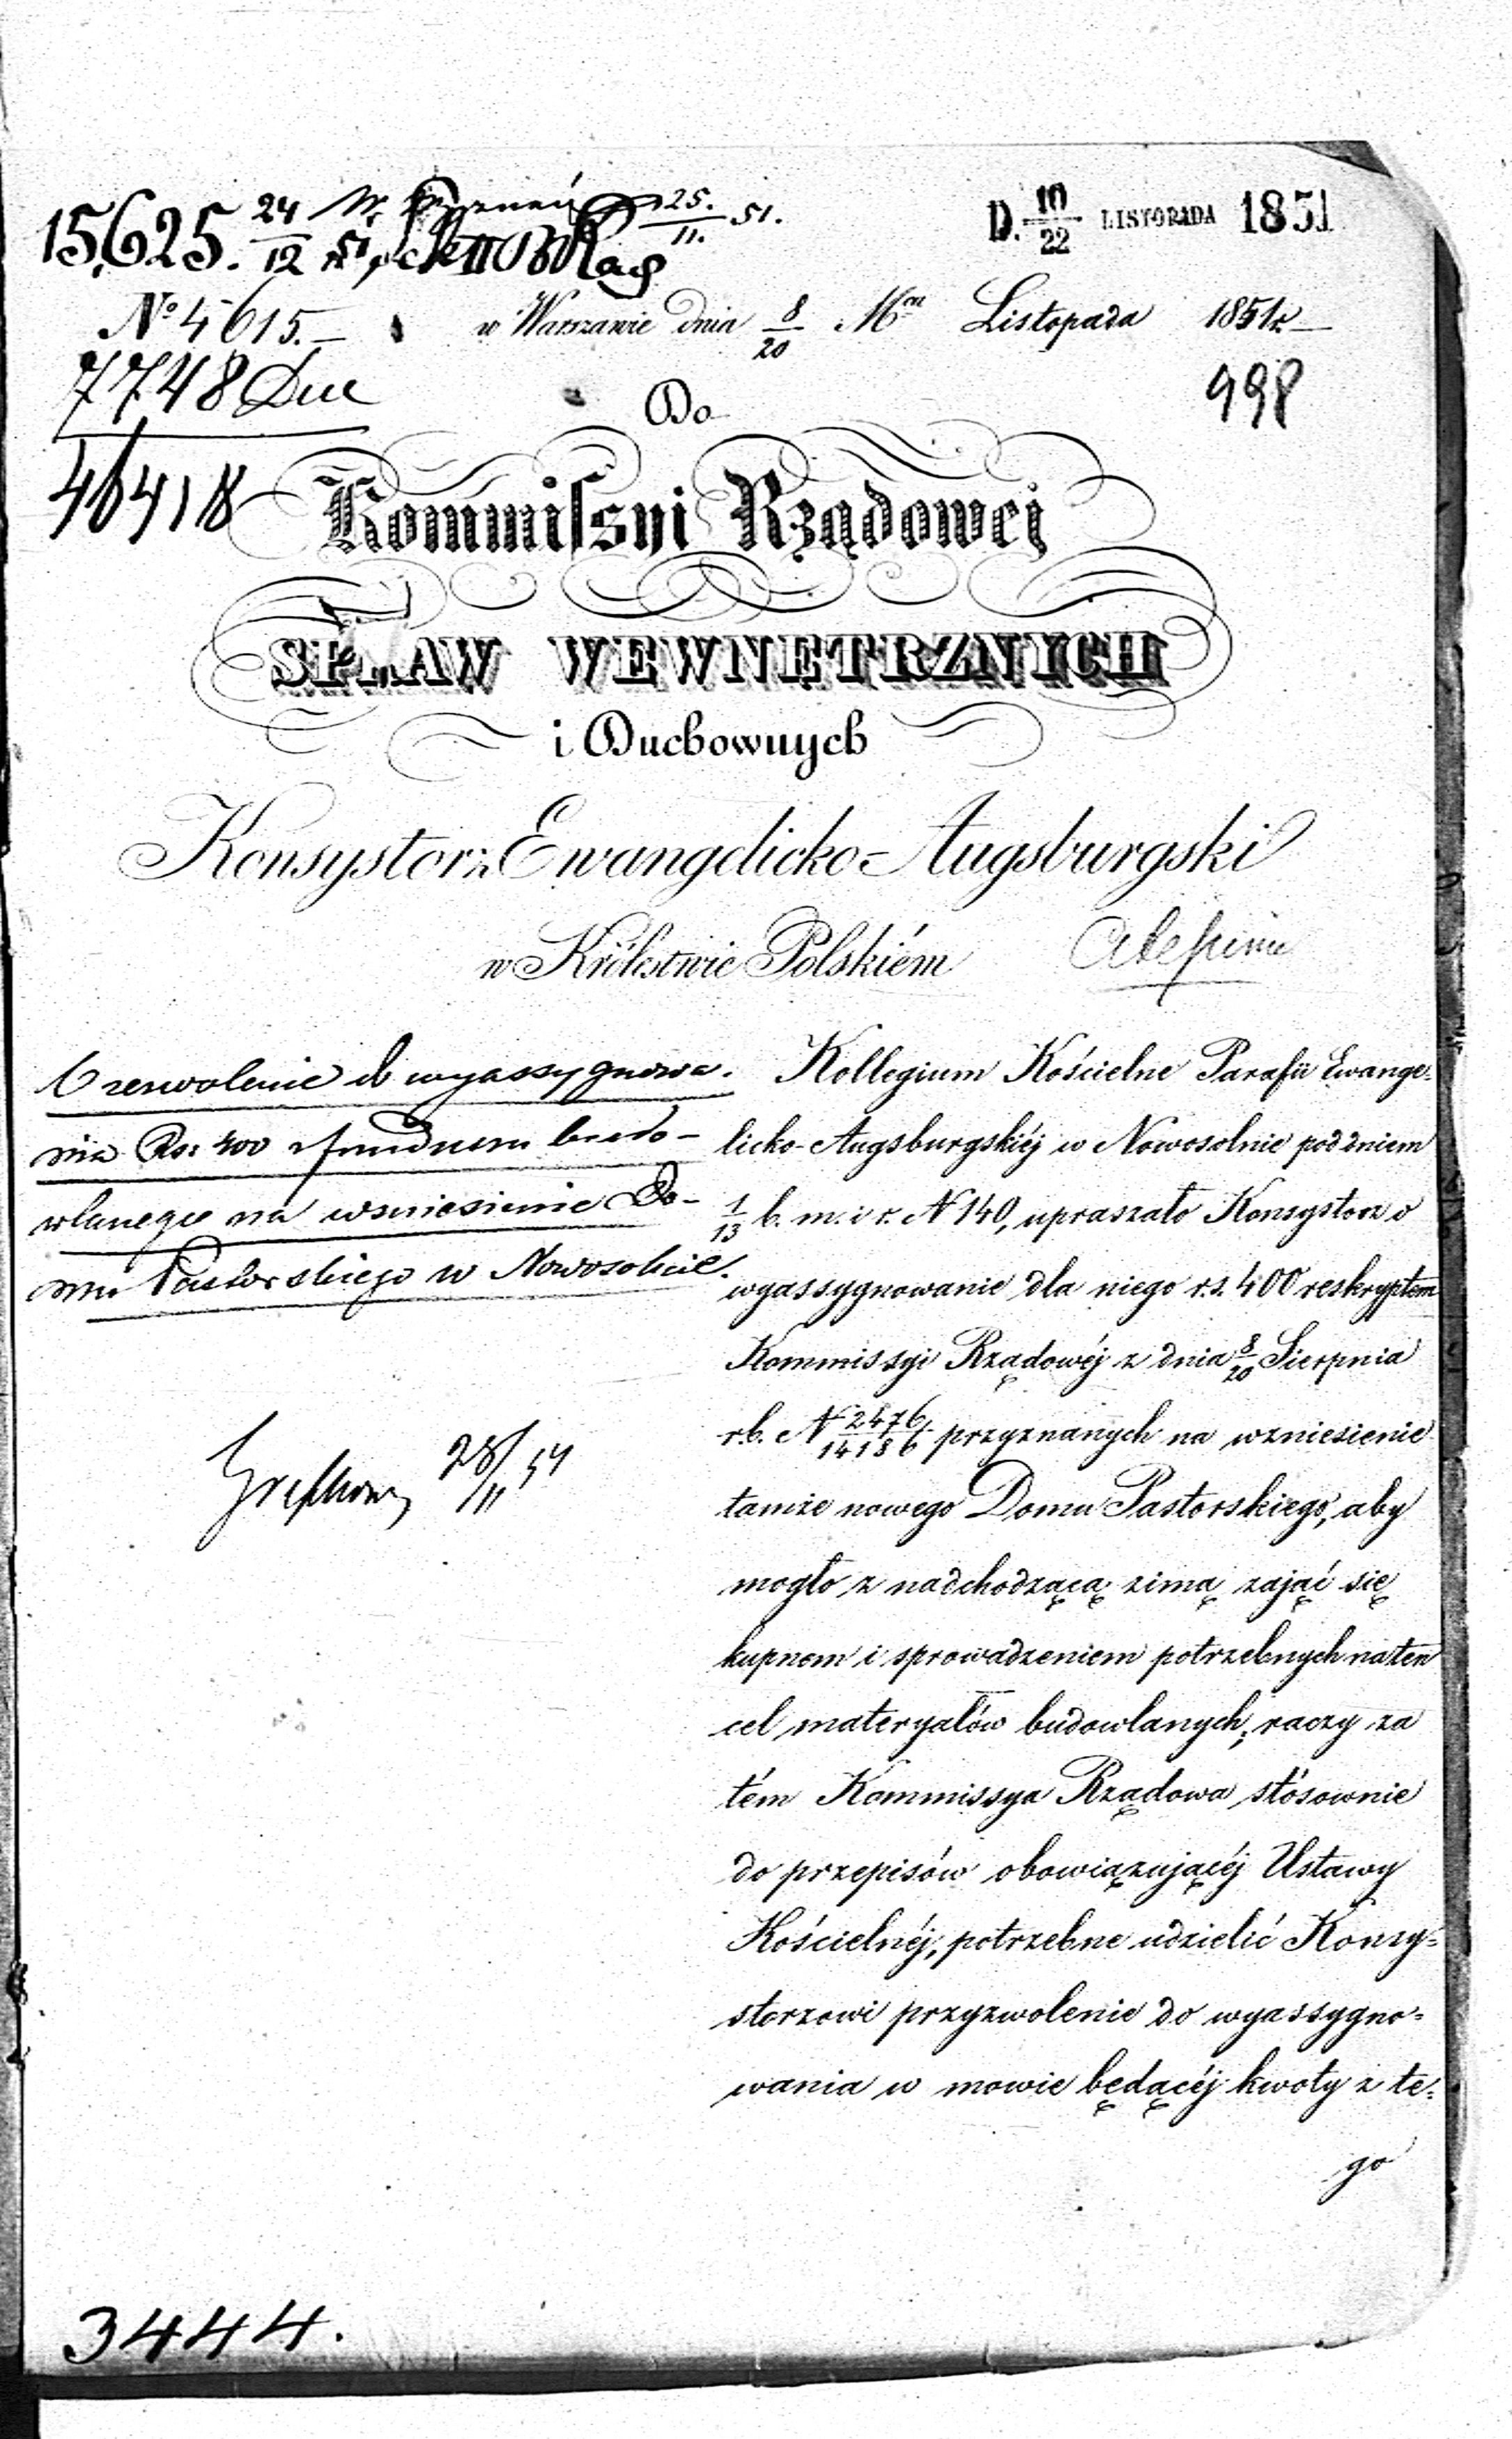 15,625. 24/12 51 25./11. 51.
D. 10/22 LISTOPADA 1851
No 4615.— w Warszawie dnia 8/20 Mca Listopada 1851 r.
7748
998
Do
46418
Kommissyi Rządowej
SPRAW WEWNĘTRZNYCH
i Duchownych
Konsystorz Ewangelicko-Augsburgski
w Królestwie Polskiém
wyassygnowa-
nia Rs: 400 z funduszu budo-
wlanego na wzniesienie Do-
mu Pastorskiego w Nowosolnie.
28/11 51
Kollegium Kościelne Parafii Ewange-
licko-Augsburgskiéj w Nowosolnie pod dniem
1/13 b. m. i r. N 140, upraszało Konsystorz o
wyassygnowanie dla niego r.s. 400 reskryptem
Kommissyi Rządowéj z dnia 8/20 Sierpnia
r.b. N 2476/14186 przyznanych na wzniesienie
tamże nowego Domu Pastorskiego, aby
mogło z nadchodzącą zimą zająć się
kupnem i sprowadzeniem potrzebnych na ten
cel materyałów budowlanych; raczy za
tém Kommissya Rządowa stósownie
do przepisów obowiązującéj Ustawy
Kościelnéj, potrzebne udzielić Konsy=
storzowi przyzwolenie do wyassygno=
wania w mowie będącéj kwoty z te=
go
3444.